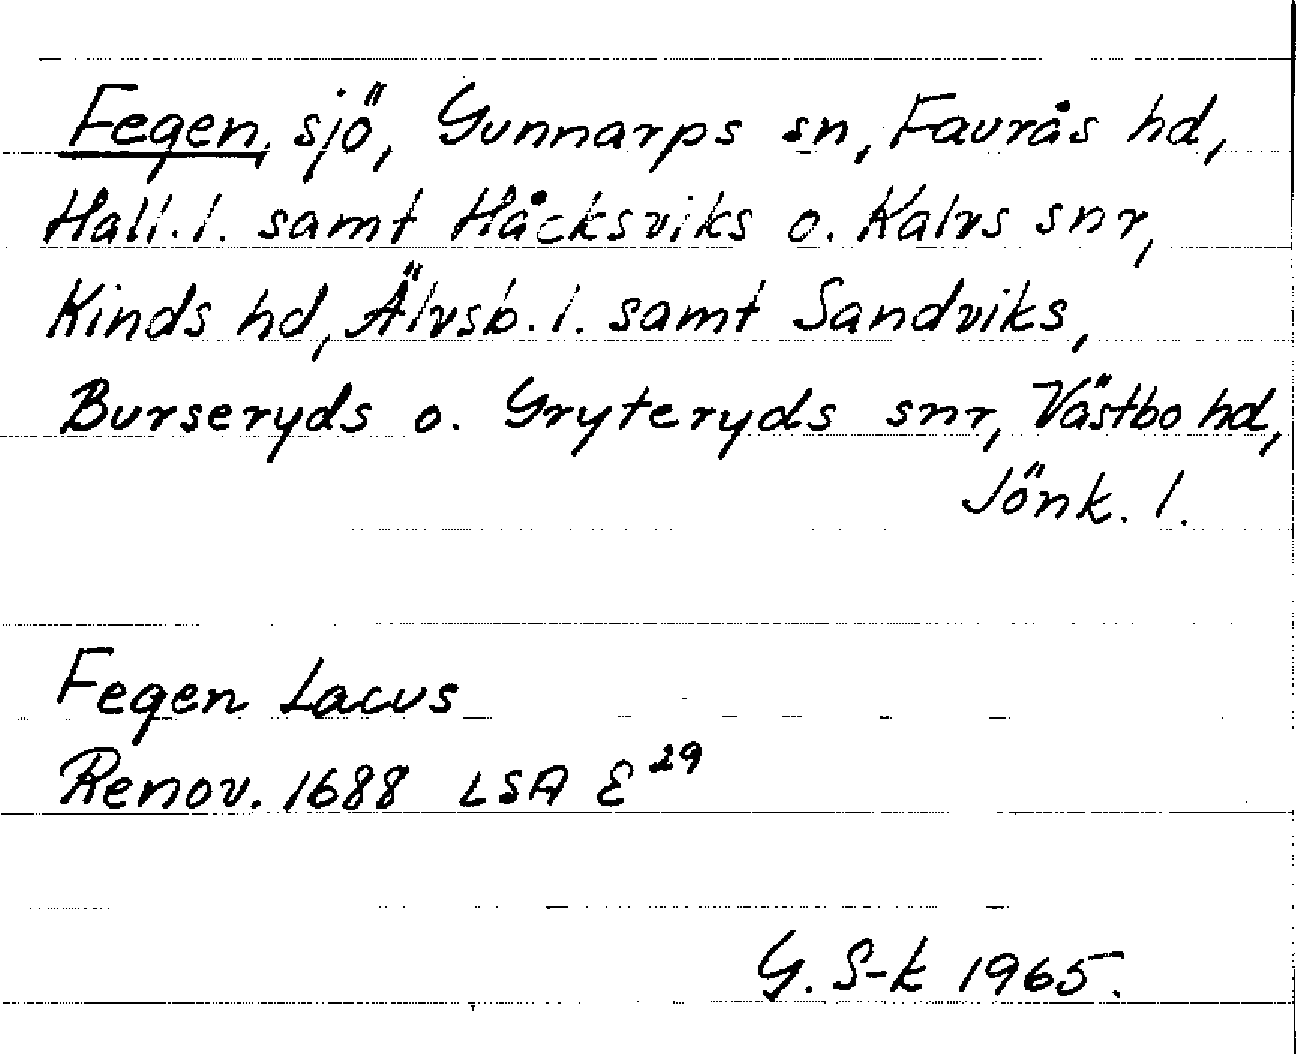 Fegen, sjö, Gunnarps sn, Faurås hd,
Hall. l. samt Håcksviks o. Kalvs snr,
Kinds hd, Älvsb. l. samt Sandviks,
Burseryds o. Gryteryds snr, Västbo hd,
Jönk. l.
Fegen Lacus
Renov. 1688 LSA E²⁹
G. S-k 1965.